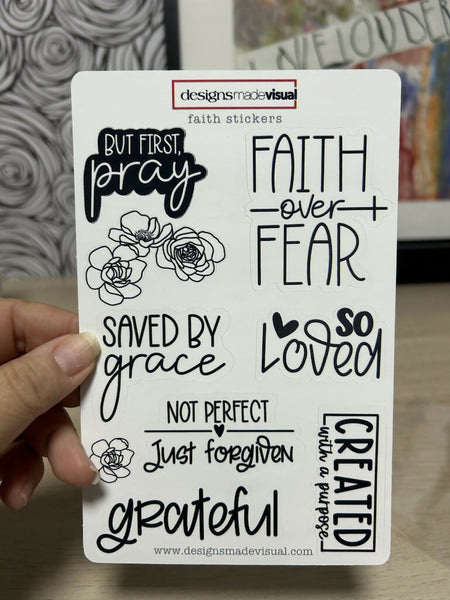 LOVE LOUDER
designsmadevisual
faith stickers
BUT FIRST,
pray
FAITH
over
FEAR
SAVED BY
grace
SO
Loved
NOT PERFECT
Just forgiven
CREATED
with a purpose
grateful
www.designsmadevisual.com